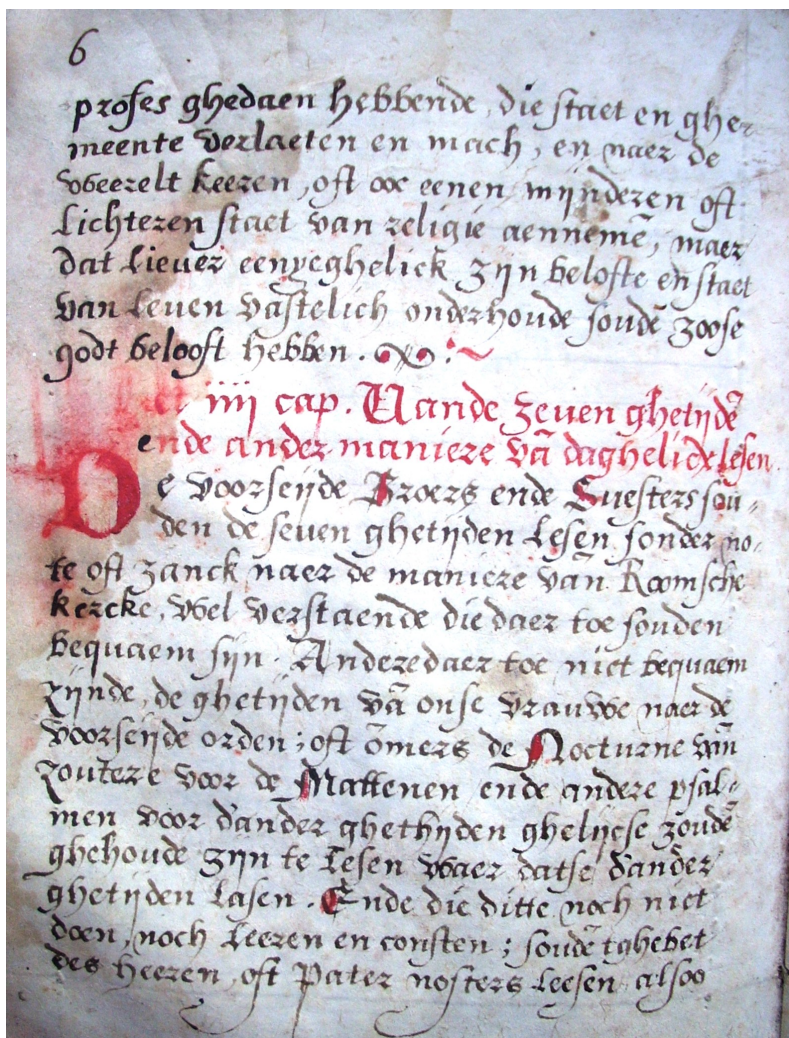 6
profes ghedaen hebbende, die staet en ghe-
meente verlaeten en mach, en naer de
weerelt keeren, oft ooc eenen mijnderen oft
lichteren staet van religie aennemē, maer
dat liever eenyeghelick zijn belofte en staet
van leven vastelich onderhoude soudē zoose
godt belooft hebben.
iiij cap. Vande zeven ghetijdē
ende ander maniere vā daghelicx lesen
De voorseijde Broers ende Suesters sou-
den de seven ghetijden lesen sonder no-
te oft zanck naer de maniere van Roomsche
kercke, wel verstaende die daer toe souden
bequaem sijn. Andere daer toe niet bequaem
zijnde, de ghetijden vā onse vrauwe naer de
voorseijde orden; oft ōmers de Nocturne van
zoutere voor de Mattenen ende andere psal-
men voor d'ander ghethijden ghelijcse zoudē
ghehoude zijn te lesen waer datse d'ander
ghetijden lasen. Ende die ditte noch niet
doen, noch leeren en consten; soudē tghebet
des heeren, oft Pater nosters leesen alsoo